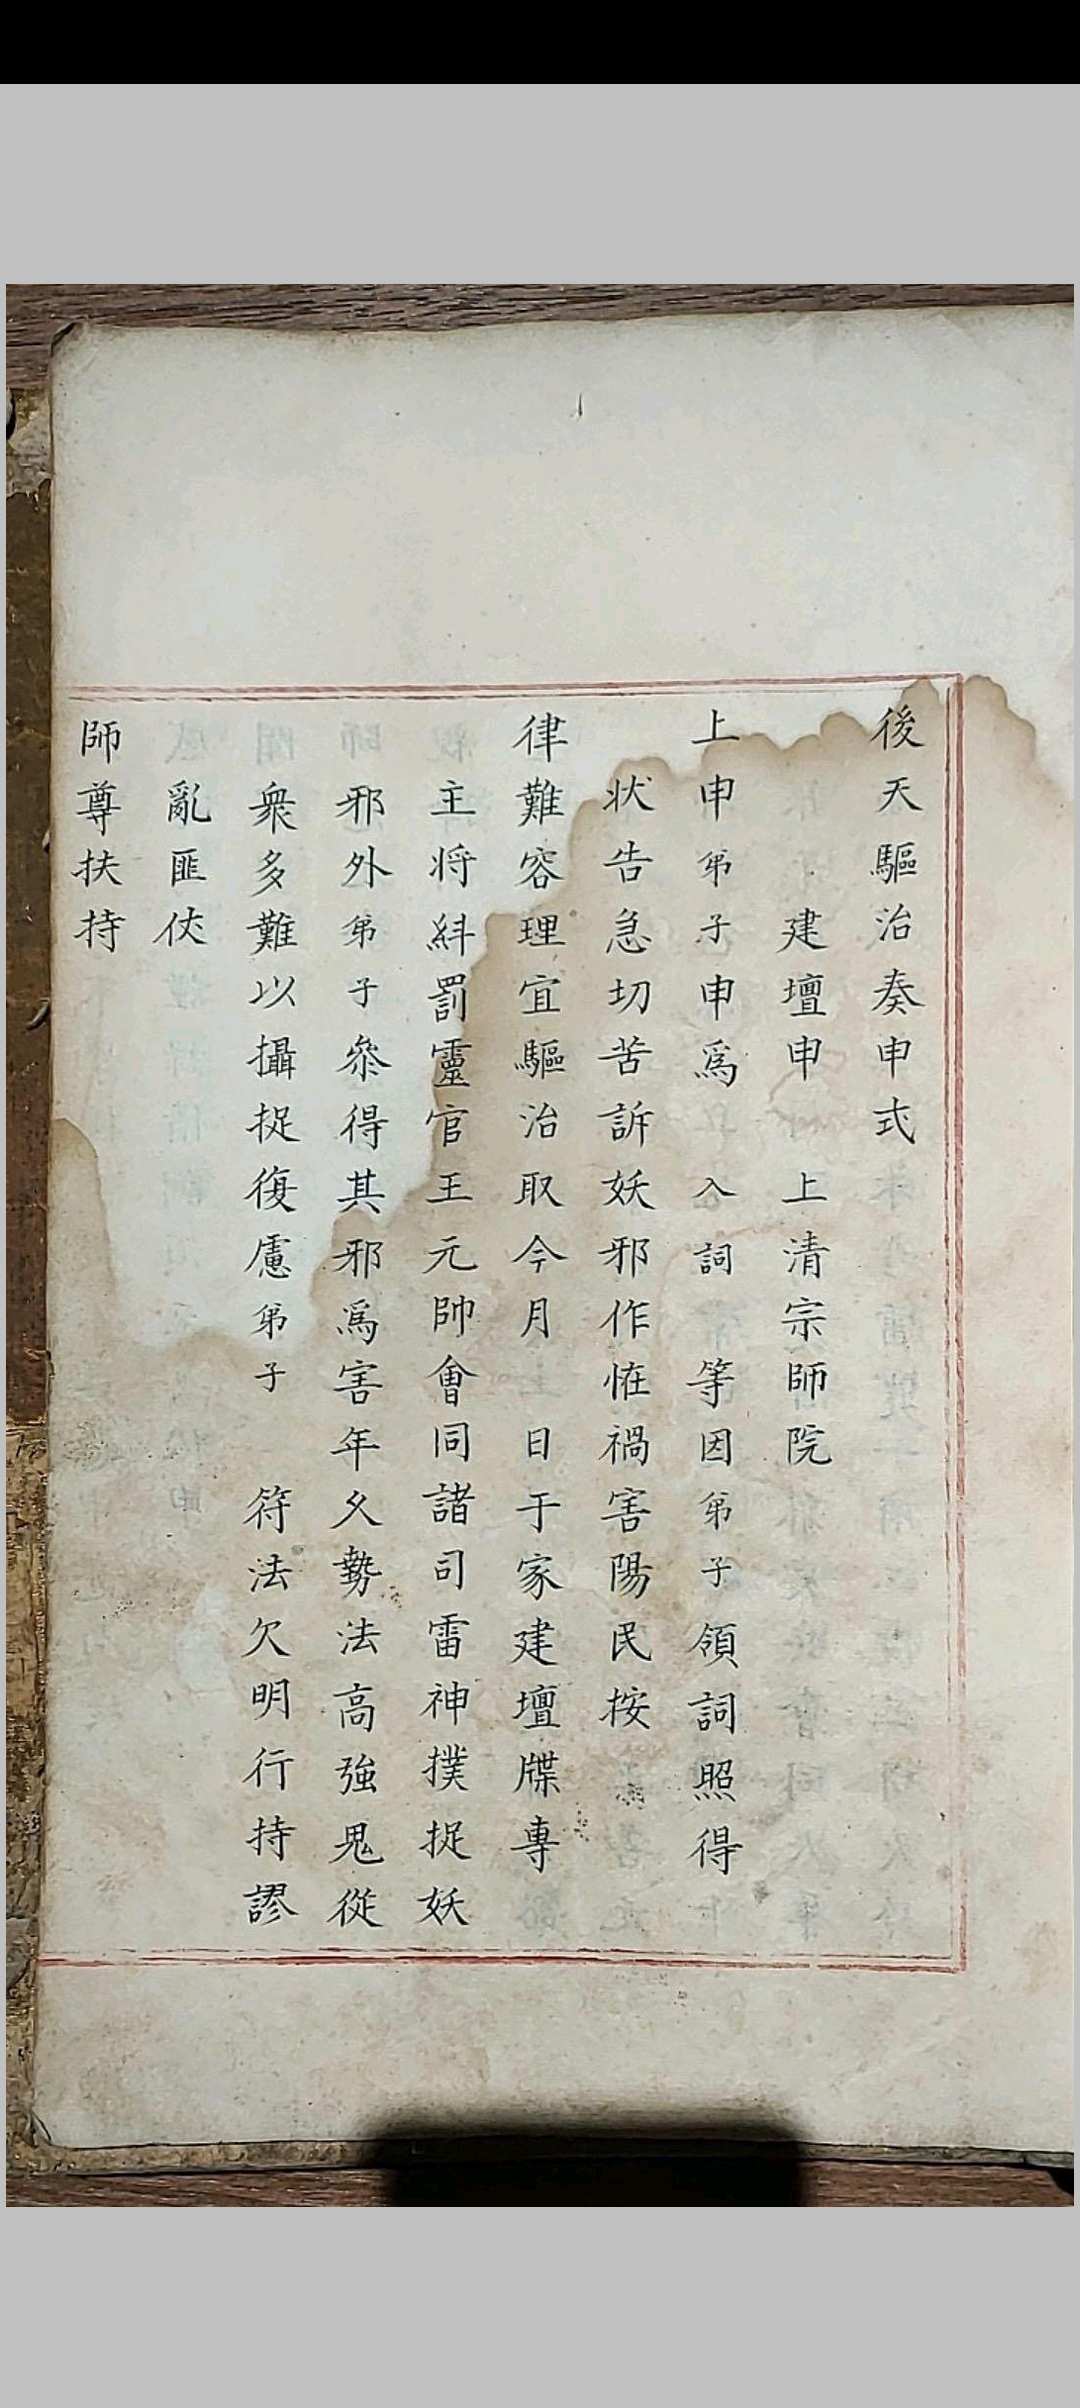 後天驅治奏申式
建壇申　上清宗師院
上申弟子申爲　入詞　等因弟子領詞照得
状告急切苦訴妖邪作恠禍害陽民按
律難容理宜驅治取今月　日于家建壇牒專
主将糾罰靈官王元帥會同諸司雷神撲捉妖
邪外弟子叅得其邪爲害年久勢法高強鬼從
衆多難以攝捉復慮弟子　符法欠明行持謬
亂匪伎
師尊扶持